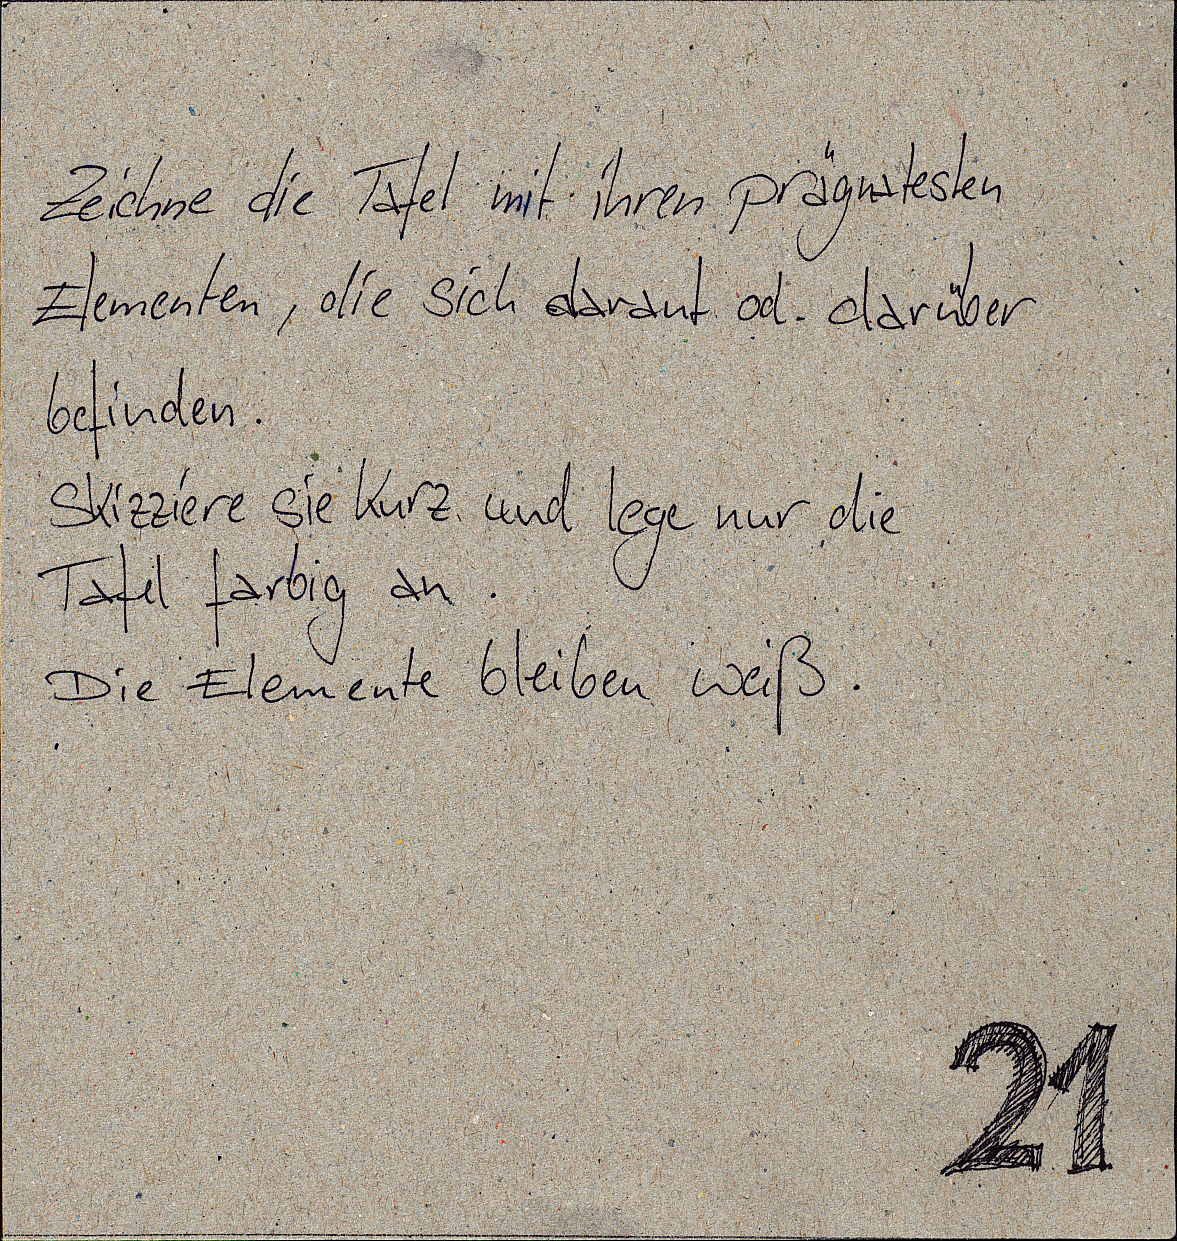 Zeichne die Tafel mit ihren prägnatesten
Elementen, die sich darauf od. darüber
befinden.
Skizziere sie kurz und lege nur die
Tafel farbig an.
Die Elemente bleiben weiß.
21